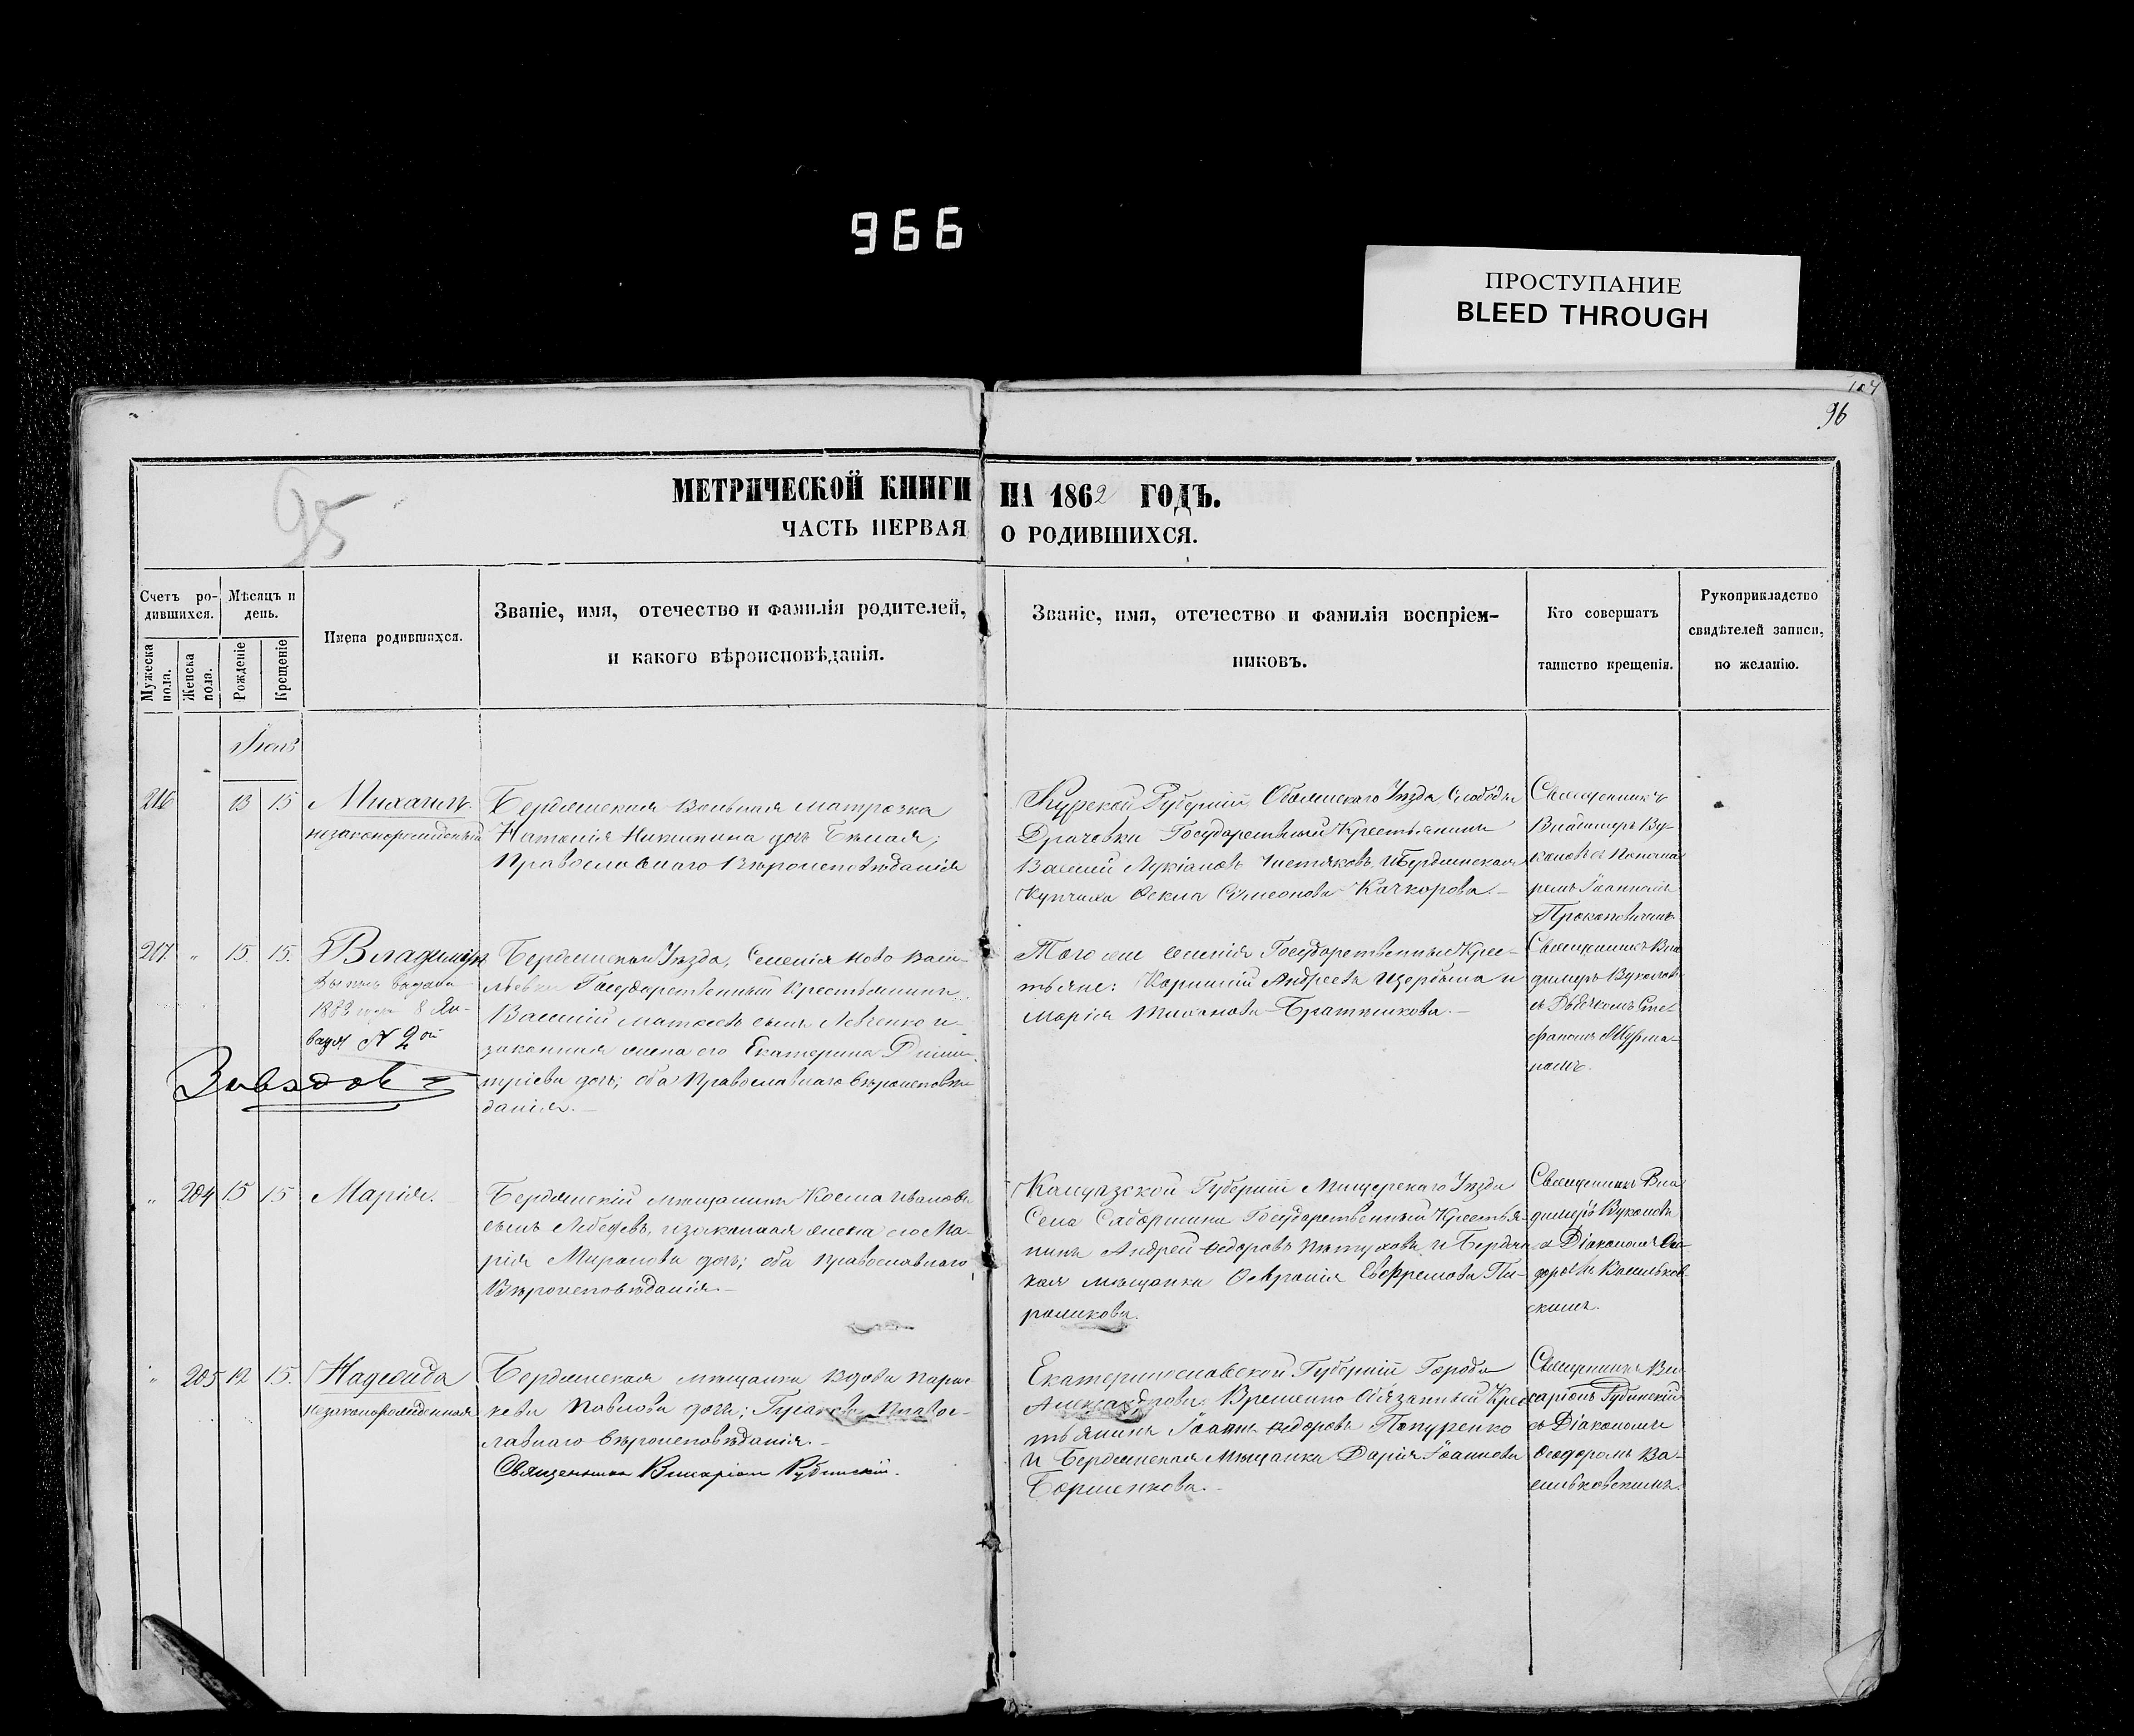 966
ПРОСТУПАНИЕ
BLEED THROUGH
104
96
95
МЕТРИЧЕСКОЙ КНИГИ НА 1862 ГОДЪ.
ЧАСТЬ ПЕРВАЯ О РОДИВШИХСЯ.
Счетъ ро-
дившихся.
Мужеска пола.
Женска пола.
Мѣсяцъ и
день.
Рожденіе
Крещеніе
Имена родившихся.
Званіе, имя, отечество и фамилія родителей,
и какого вѣроисповѣданія.
Званіе, имя, отечество и фамилія воспріем-
никовъ.
Кто совершатъ
таинство крещенія.
Рукоприкладство
свидѣтелей записи,
по желанію.
216 13 15
Михаилъ.
незаконорожденный
Бердянская вольная матрозка
Наталія Никитина дочь Бѣлая;
Православнаго Вѣроисповѣданія
Курской Губерніи Обоянскаго Уѣзда Слободы
Драчевки Государственный Крестьянинъ
Василій Лукіановъ Чистяковъ и Бердянская
Купчиха Ѳекла Сѵмеонова Качкорова.-
Священникъ
Владимиръ Ву-
коловъ съ Понома
ремъ Іоанномъ
Прокоповичемъ
217. " 15. 15.
Владиміръ
выдана
1883 года 8 Ян-
варя № 2ой
Бердянскаго Уѣзда, Селенія Ново Васи-
льевки Государственный Крестьянинъ
Василій Матвеевъ сынъ Левченко и
законная жена его Екатерина Дими-
тріева дочь; оба Православнаго вѣроисповѣ-
данія.-
Того же селенія Государственные Крес-
тьяне: Корнилій Андреевъ Щербина и
Марія Тиханова Братишкова.-
Священникъ Вла
димиръ Вуколовъ
съ Дьячкомъ Сте-
фаномъ
" 204 15 15
Марія.
Бердянскій мѣщанинъ Косма Ивановъ
сынъ Лебедевъ, и законная жена его Ма-
рія Миронова дочь; оба Православнаго
Вѣроисповѣданія.-
Калужской Губерніи Мищерскаго Уѣзда
Села Государственный Крестья-
нинъ Андрей Ѳедоровъ Пѣтуховъ и Бердян
кая мѣщанка Евфремова Пи-
роликова.
Священникъ Вла
димеръ Вуколовъ
съ Діакономъ Ѳео-
доромъ Васильков-
скимъ.
" 205 12 15.
Надежда
незаконорожденная
Бердянская мѣщанка Вдова Парас
кева Павлова дочь; Гусакова Правос-
лавнаго вѣроисповѣданія.-
Священникъ Виссаріонъ Рубинскій.
Екатеринославской Губерніи Города
Александрова Временно Обязанный Крес
тьянинъ Іоаннъ Ѳедоровъ Папуренко
и Бердянская Мѣщанка Дарія Іоаннова
Борисенкова.-
Священникъ Вис
саріонъ Рубинскій
съ Діакономъ
Ѳеодоромъ Ва-
сильковскимъ.